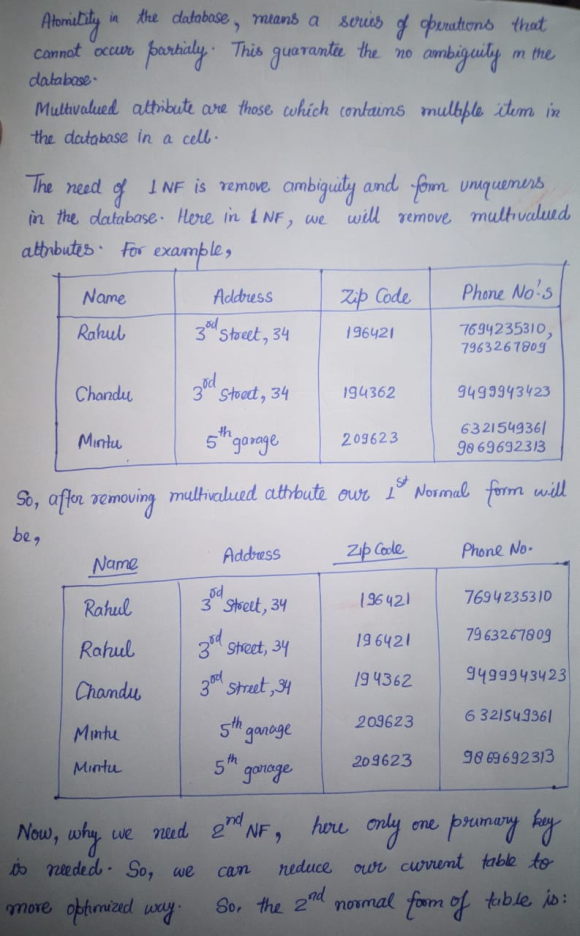 Atomitity in the database, means a series of operations that
cannot occur partialy. This guarantee the no ambiguity in the
database.
Multivalued attribute are those which contains multiple item in
the database in a cell.
The need of 1NF is remove ambiguity and form uniqueness
in the database. Here in 1NF, we will remove multivalued
attributes. For example,
Name Address Zip Code Phone No's
Rahul 3rd Street, 34 196421 7694235310,
7963267809
Chandu 3rd Street, 34 194362 9499943423
Mintu 5th garage 209623 6321549361
9869692313
So, after removing multivalued attribute our 1st Normal form will
be,
Name Address Zip Code Phone No.
Rahul 3rd Street, 34 196421 7694235310
Rahul 3rd Street, 34 196421 7963267809
Chandu 3rd Street, 34 194362 9499943423
Mintu 5th garage 209623 6321549361
Mintu 5th garage 209623 9869692313
Now, why we need 2nd NF, here only one primary key
is needed. So, we can reduce our current table to
more optimized way. So, the 2nd normal form of table is: